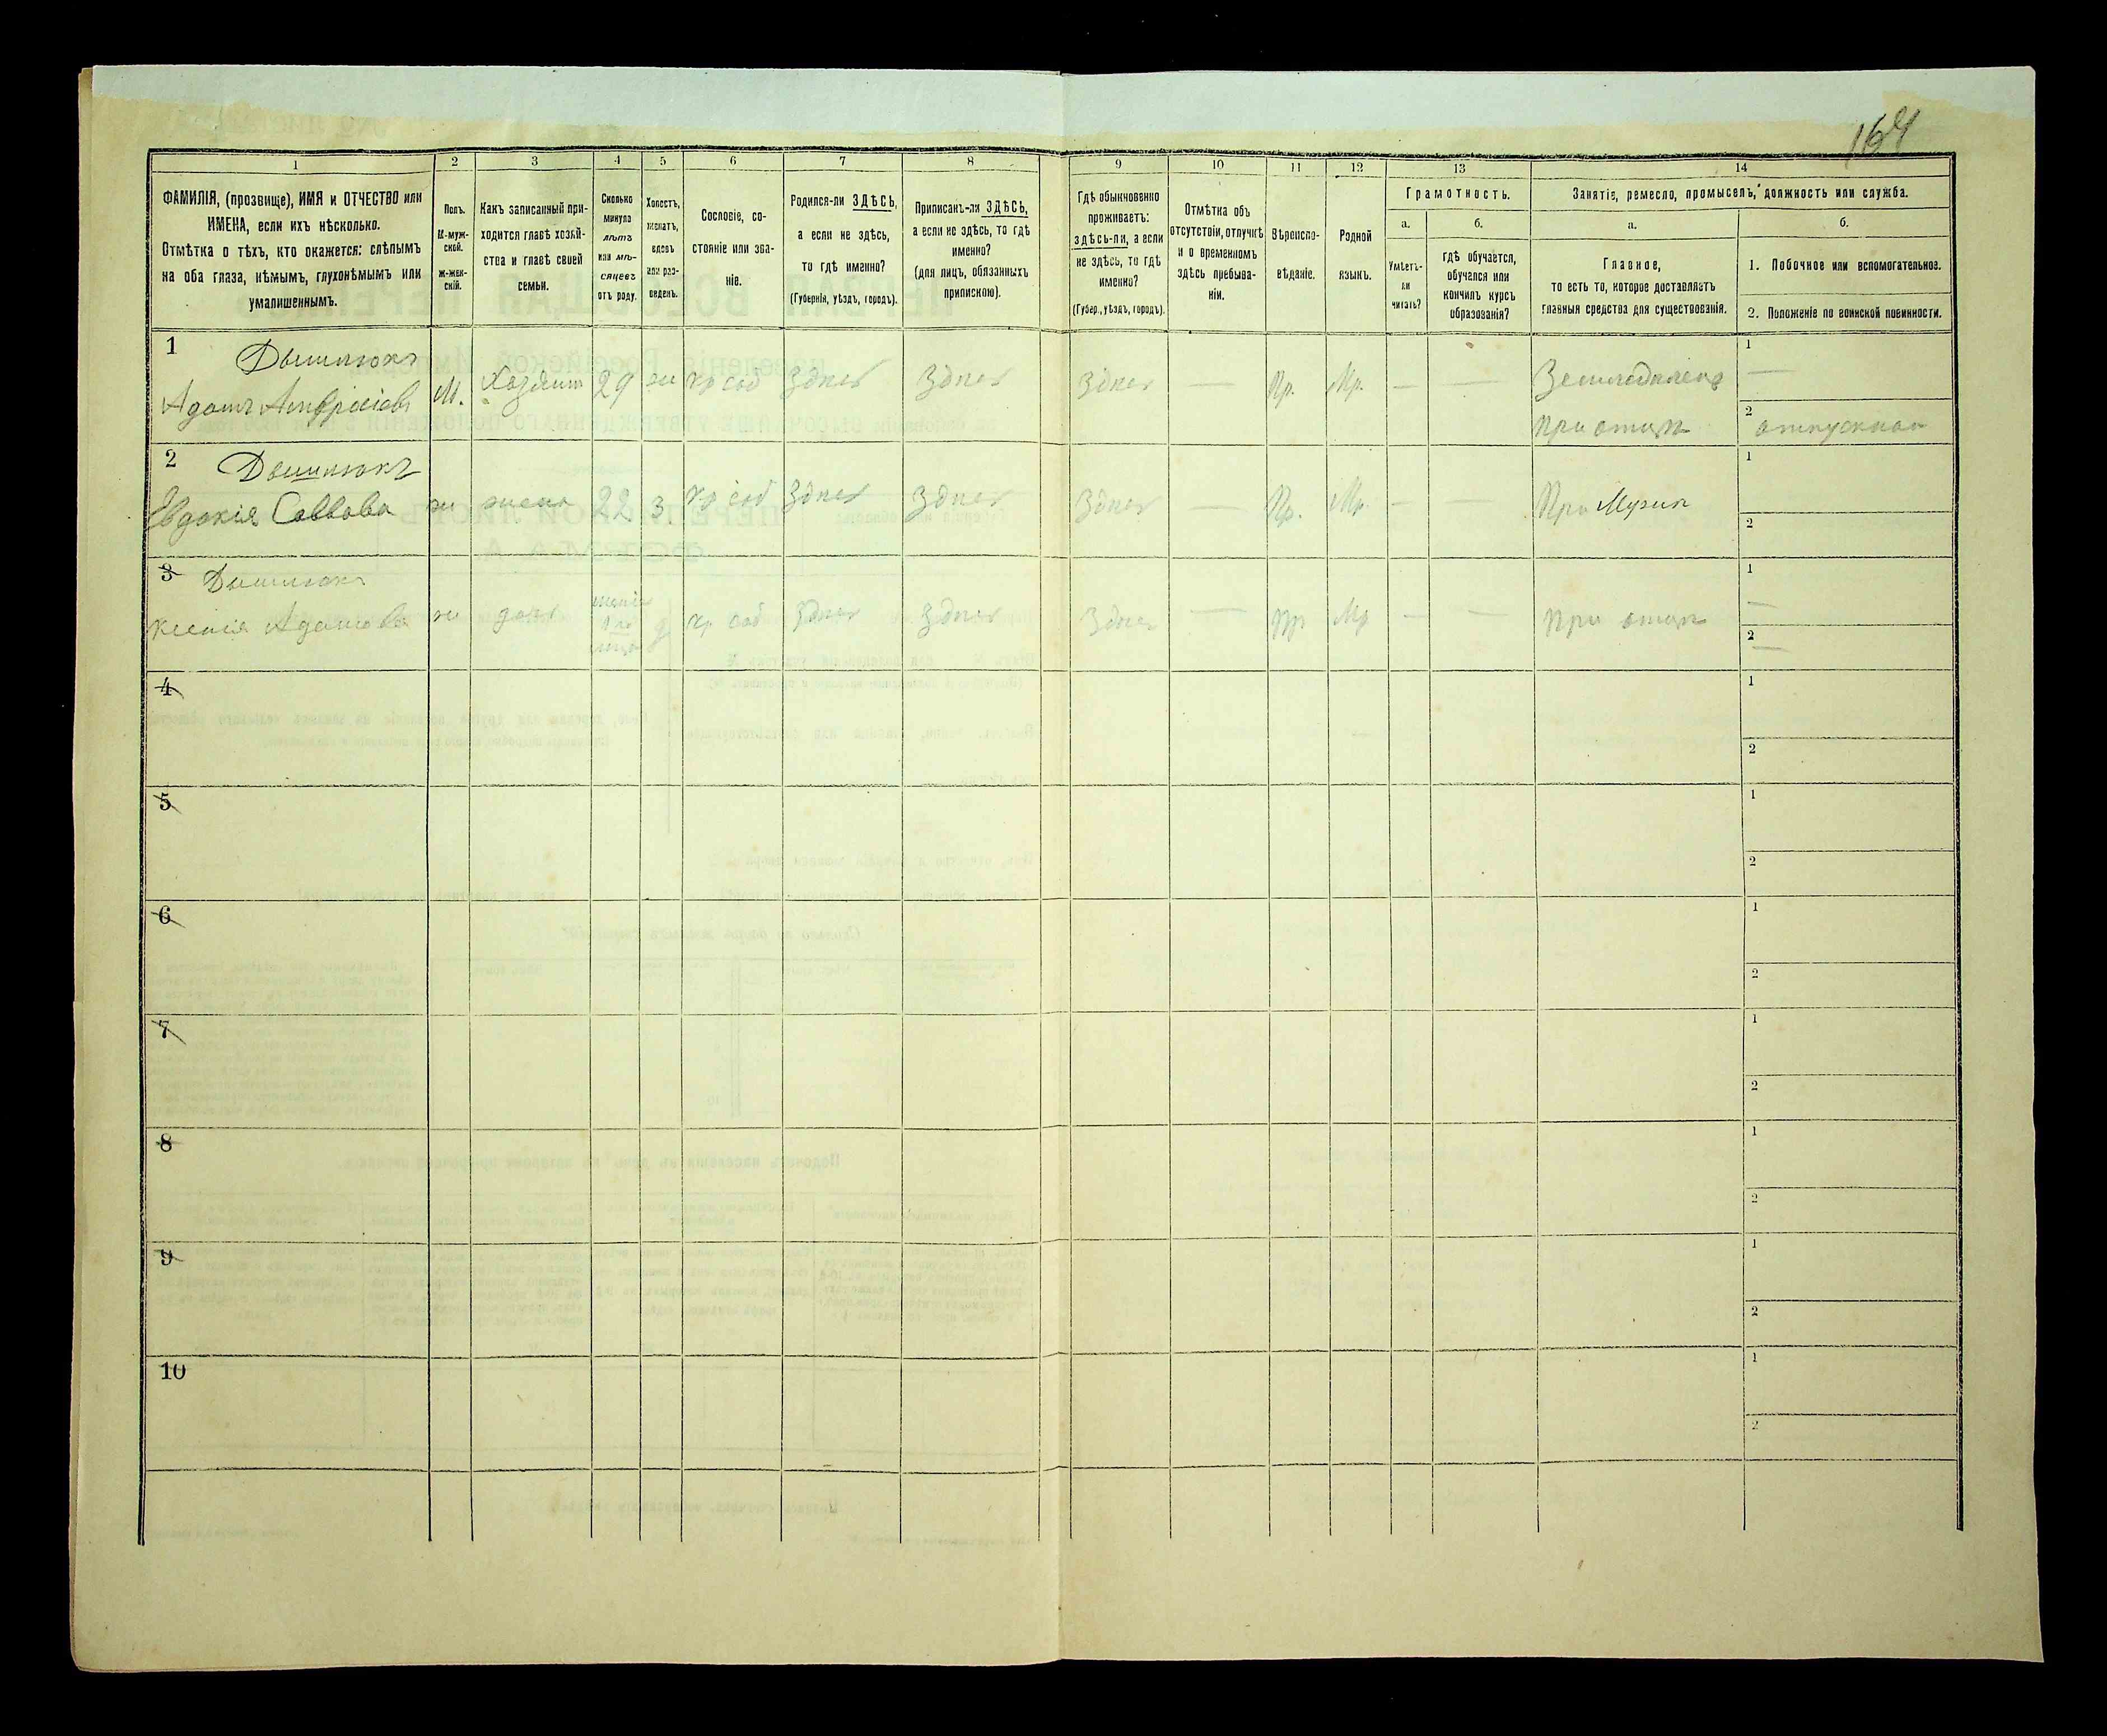 164
1 2 3 4 5 6 7 8 9 10 11 12 13 14
ФАМИЛІЯ, (прозвище), ИМЯ и ОТЧЕСТВО или
ИМЕНА, если ихъ нѣсколько.
Отмѣтка о тѣхъ, кто окажется: слѣпымъ
на оба глаза, нѣмымъ, глухонѣмымъ или
умалишеннымъ.
Полъ.
М-муж-
ской.
Ж-жен-
скій.
Какъ записанный при-
ходится главѣ хозяй-
ства и главѣ своей
семьи.
Сколько
минуло
лѣтъ
или мѣ-
сяцевъ
отъ роду.
Холостъ,
женатъ,
вдовъ
или раз-
веденъ.
Сословіе, со-
стояніе или зва-
ніе.
Родился-ли ЗДѢСЬ,
а если не здѣсь,
то гдѣ именно?
(Губернія, уѣздъ, городъ).
Приписанъ-ли ЗДѢСЬ,
а если не здѣсь, то гдѣ
именно?
(для лицъ, обязанныхъ
припискою).
Гдѣ обыкновенно
проживаетъ:
здѣсь-ли, а если
не здѣсь, то гдѣ
именно?
(Губер., уѣздъ, городъ).
Отмѣтка объ
отсутствіи, отлучкѣ
и о временномъ
здѣсь пребыва-
ніи.
Вѣроиспо-
вѣданіе.
Родной
языкъ.
Грамотность.
а.
Умѣетъ-
ли
читать?
б.
гдѣ обучается,
обучался или
кончилъ курсъ
образованія?
Занятіе, ремесло, промыселъ, должность или служба.
а.
Главное,
то есть то, которое доставляетъ
главныя средства для существованія.
б.
1. Побочное или вспомогательное.
2. Положеніе по воинской повинности.
1 Дышлюкъ
Адамъ М. Хозяин 29 ж кр соб Здпсь Здпсь Здпсь — Пр. Мр. — — Земледплецъ 1 —
при отцп 2 отпускной
2 Дышлюкъ
Евдокія Саввова ж жена 22 з кр соб Здпсь Здпсь Здпсь — Пр. Мр. — — При Мужп 1
2
3 Дышлюкъ
Ксенія Адамова ж дочь 1 д кр соб Здпсь Здпсь Здпсь — Пр Мр — — При отцп 1 —
2 —
4 1
2
5 1
2
6 1
2
7 1
2
8 1
2
9 1
2
10 1
2